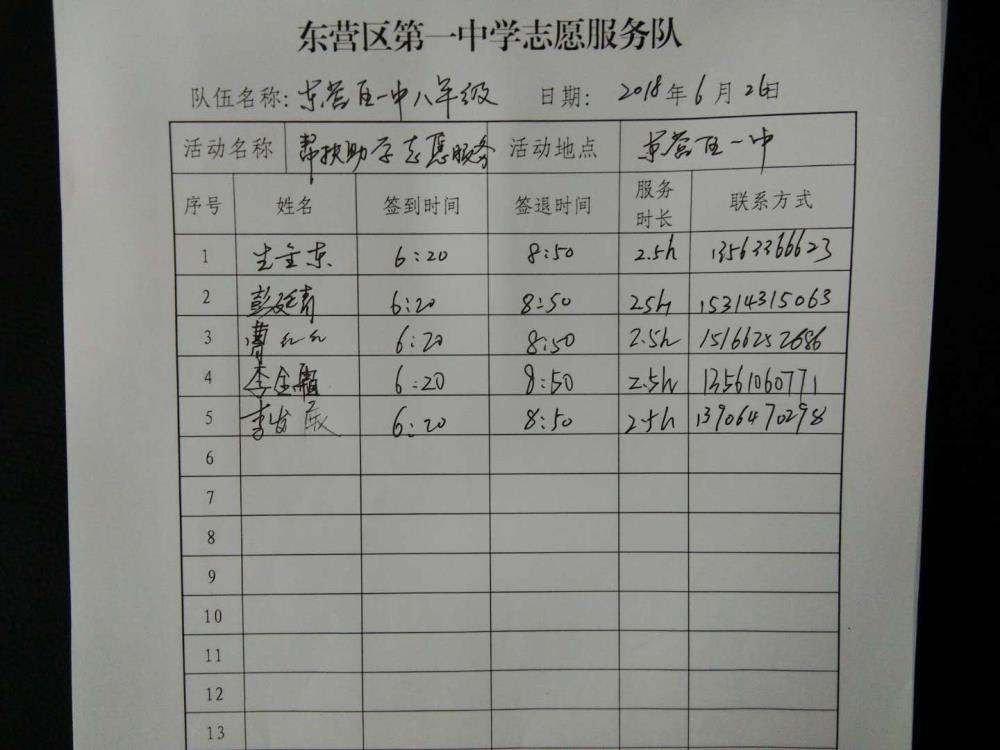 东营区第一中学志愿服务队
队伍名称: 东营区一中八年级 日期: 2018年6月26日
活动名称 帮扶助学志愿服务 活动地点 东营区一中
序号 姓名 签到时间 签退时间 服务时长 联系方式
1 生金东 6:20 8:50 2.5h 13563366623
2 彭延青 6:20 8:50 2.5h 15314315063
3 曹红红 6:20 8:50 2.5h 15166252686
4 李金 6:20 8:50 2.5h 13561060771
5 李 6:20 8:50 2.5h 13906470298
6
7
8
9
10
11
12
13